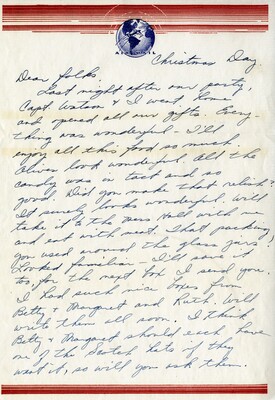 Christmas Day.
Dear folks.
Last night after our party,
Capt. Watson & I went home
and opened all our gifts. Every-
thing was wonderful - I'll
enjoy all this food so much.
Olives look wonderful. All the
candy was in tact and so
good. Did you make that relish?
It surely looks wonderful. Will
take it to the Mess Hall with me
and eat with meat. That packing
you used around the glass jars
looked familiar - I'll save it
too, for the next box I send you.
I had such nice boxes from
Betty & Margaret and Ruth. Will
write them all soon. I think
Betty & Margaret should each have
one of the Scotch hats if they
want it, so will you ask them.